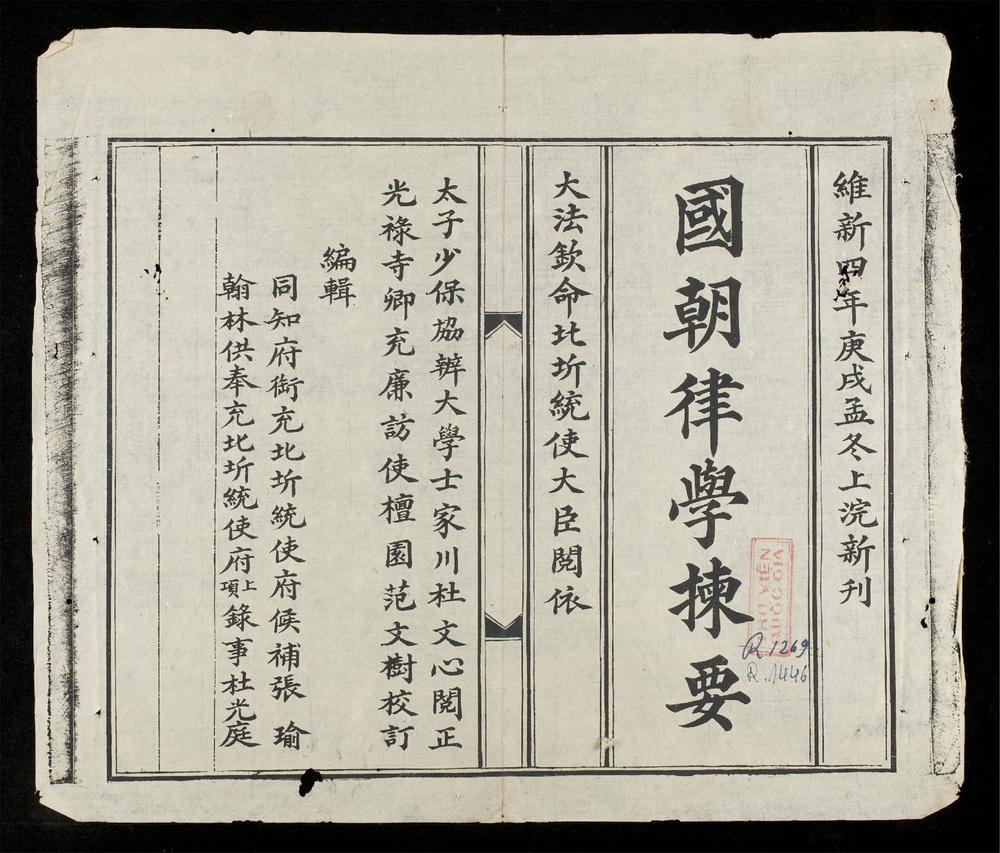 維新四年庚戌孟冬上浣新刊
國朝律學揀要
大法欽命北圻統使大臣閱依
太子少保協辨大學士家川杜文心閱正
光祿寺卿充廉訪使檀園范文樹校訂
編輯
同知府銜充北圻統使府候補張瑜
翰林供奉充北圻統使府上項錄事杜光庭
THƯ VIỆN
QUỐC GIA
R 1269
R. 1446